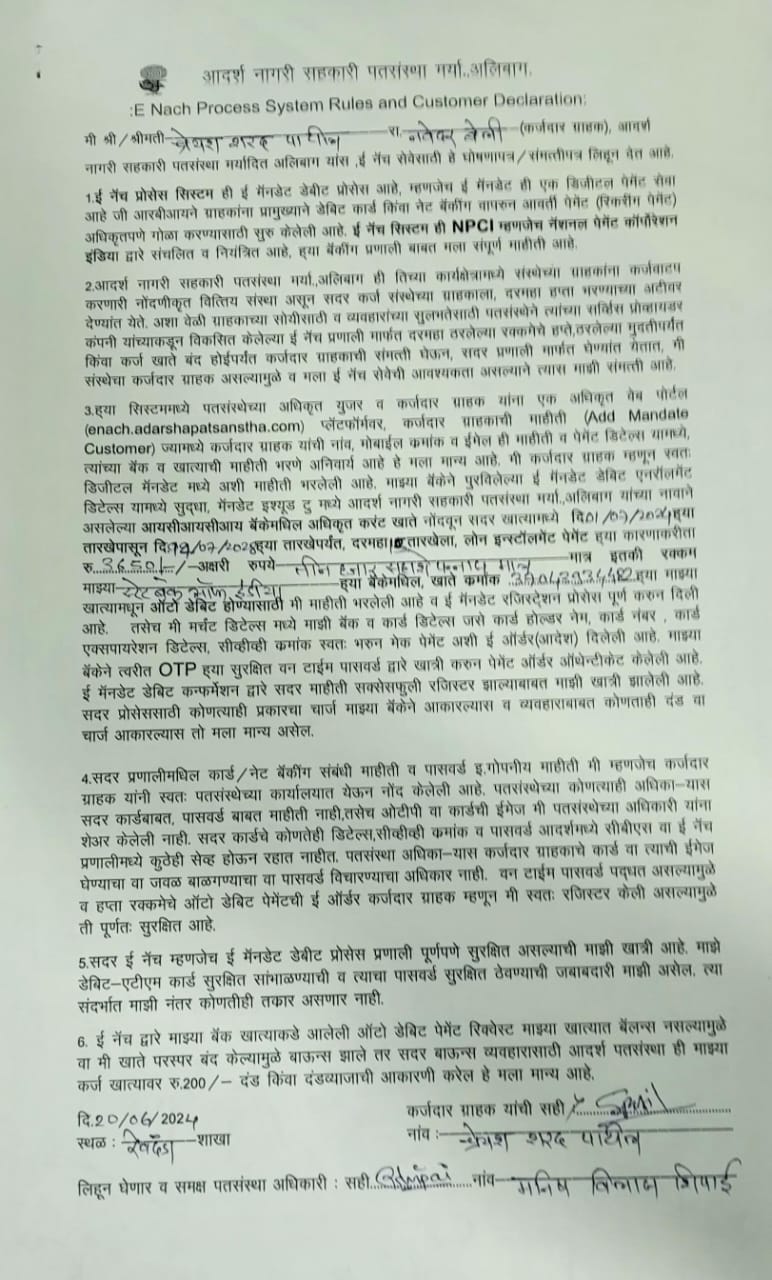 आदर्श नागरी सहकारी पतसंस्था मर्या.,अलिबाग.
:E Nach Process System Rules and Customer Declaration:
मी श्री/श्रीमती शरद पाटील रा. (कर्जदार ग्राहक), आदर्श
नागरी सहकारी पतसंस्था मर्यादित अलिबाग यांस ,ई नॅच सेवेसाठी हे घोषणापत्र/संमत्तीपत्र लिहून देत आहे.
1.ई नॅच प्रोसेस सिस्टम ही ई मॅनडेट डेबीट प्रोसेस आहे, म्हणजेच ई मॅनडेट ही एक डिजीटल पेमेंट सेवा
आहे जी आरबीआयने ग्राहकांना प्रामुख्याने डेबिट कार्ड किंवा नेट बॅकींग वापरुन आवर्ती पेमेंट (रिकरींग पेमेंट)
अधिकृतपणे गोळा करण्यासाठी सुरु केलेली आहे. ई नॅच सिस्टम ही NPCI म्हणजेच नॅशनल पेमेंट कॉर्पोरेशन
इंडिया द्वारे संचलित व नियंत्रित आहे, हया बॅकींग प्रणाली बाबत मला संपूर्ण माहीती आहे.
2.आदर्श नागरी सहकारी पतसंस्था मर्या.,अलिबाग ही तिच्या कार्यक्षेत्रामध्ये संस्थेच्या ग्राहकांना कर्जवाटप
करणारी नोंदणीकृत वित्तिय संस्था असून सदर कर्ज संस्थेच्या ग्राहकाला, दरमहा हप्ता भरण्याच्या अटीवर
देण्यांत येते. अशा वेळी ग्राहकाच्या सोयीसाठी व व्यवहारांच्या सुलभतेसाठी पतसंस्थेने त्यांच्या सर्व्हिस प्रोव्हायडर
कंपनी यांच्याकडून विकसित केलेल्या ई नॅच प्रणाली मार्फत दरमहा ठरलेल्या रक्कमेचे हप्ते,ठरलेल्या मुदतीपर्यंत
किंवा कर्ज खाते बंद होईपर्यंत कर्जदार ग्राहकाची संमत्ती घेऊन, सदर प्रणाली मार्फत घेण्यांत येतात, मी
संस्थेचा कर्जदार ग्राहक असल्यामुळे व मला ई नॅच सेवेची आवश्यकता असल्याने त्यास माझी संमत्ती आहे.
3.हया सिस्टममध्ये पतसंस्थेच्या अधिकृत युजर व कर्जदार ग्राहक यांना एक अधिकृत वेब पोर्टल
(enach.adarshapatsanstha.com) प्लॅटफॉर्मवर, कर्जदार ग्राहकाची माहीती (Add Mandate
Customer) ज्यामध्ये कर्जदार ग्राहक यांची नांव, मोबाईल कमांक व ईमेल ही माहीती व पेमेंट डिटेल्स यामध्ये,
त्यांच्या बॅक व खात्याची माहीती भरणे अनिवार्य आहे हे मला मान्य आहे. मी कर्जदार ग्राहक म्हणून स्वतः
डिजीटल मॅनडेट मध्ये अशी माहीती भरलेली आहे. माझ्या बॅकेने पुरविलेल्या ई मॅनडेट डेबिट एनरॉलमेंट
डिटेल्स यामध्ये सुद्धा, मॅनडेट इश्यूड टु मध्ये आदर्श नागरी सहकारी पतसंस्था मर्या.,अलिबाग यांच्या नावाने
असलेल्या आयसीआयसीआय बॅंकेमधिल अधिकृत करंट खाते नोंदवून सदर खात्यामध्ये दि01/07/2024हया
तारखेपासून दि. /07/2028हया तारखेपर्यंत, दरमहा तारखेला, लोन इन्स्टॉलमेंट पेमेंट हया कारणाकरीता
रु.3650/-/-अक्षरी रुपये तीन हजार सहाशे पन्नास मात्र मात्र इतकी रक्कम
माझ्या स्टेट बँक ऑफ इंडिया हया बॅकेमधिल, खाते कमांक हया माझ्या
खात्यामधून ऑटो डेबिट होण्यासाठी मी माहीती भरलेली आहे व ई मॅनडेट रजिस्ट्रेशन प्रोसेस पूर्ण करुन दिली
आहे. तसेच मी मर्चंट डिटेल्स मध्ये माझी बॅक व कार्ड डिटेल्स जसे कार्ड होल्डर नेम, कार्ड नंबर , कार्ड
एक्सपायरेशन डिटेल्स, सीव्हीव्ही कमांक स्वतः भरुन मेक पेमेंट अशी ई ऑर्डर(आदेश) दिलेली आहे. माझ्या
बॅकेने त्वरीत OTP हया सुरक्षित वन टाईम पासवर्ड द्वारे खात्री करुन पेमेंट ऑर्डर ऑथेन्टीकेट केलेली आहे.
ई मॅनडेट डेबिट कन्फर्मेशन द्वारे सदर माहीती सक्सेसफुली रजिस्टर झाल्याबाबत माझी खात्री झालेली आहे.
सदर प्रोसेससाठी कोणत्याही प्रकारचा चार्ज माझ्या बॅकेने आकारल्यास व व्यवहाराबाबत कोणताही दंड वा
चार्ज आकारल्यास तो मला मान्य असेल.
4.सदर प्रणालीमधिल कार्ड/नेट बॅकींग संबंधी माहीती व पासवर्ड इ.गोपनीय माहीती मी म्हणजेच कर्जदार
ग्राहक यांनी स्वतः पतसंस्थेच्या कार्यालयात येऊन नोंद केलेली आहे. पतसंस्थेच्या कोणत्याही अधिका-यास
सदर कार्डबाबत, पासवर्ड बाबत माहीती नाही,तसेच ओटीपी वा कार्डची ईमेज मी पतसंस्थेच्या अधिकारी यांना
शेअर केलेली नाही. सदर कार्डचे कोणतेही डिटेल्स,सीव्हीव्ही कमांक व पासवर्ड आदर्शमध्ये सीबीएस वा ई नॅच
प्रणालीमध्ये कुठेही सेव्ह होऊन रहात नाहीत. पतसंस्था अधिका-यास कर्जदार ग्राहकाचे कार्ड वा त्याची ईमेज
घेण्याचा वा जवळ बाळगण्याचा वा पासवर्ड विचारण्याचा अधिकार नाही. वन टाईम पासवर्ड पद्धत असल्यामुळे
व हप्ता रक्कमेचे ऑटो डेबिट पेमेंटची ई ऑर्डर कर्जदार ग्राहक म्हणून मी स्वतः रजिस्टर केली असल्यामुळे
ती पूर्णतः सुरक्षित आहे.
5.सदर ई नॅच म्हणजेच ई मॅनडेट डेबीट प्रोसेस प्रणाली पूर्णपणे सुरक्षित असल्याची माझी खात्री आहे. माझे
डेबिट-एटीएम कार्ड सुरक्षित सांभाळण्याची व त्याचा पासवर्ड सुरक्षित ठेवण्याची जबाबदारी माझी असेल, त्या
संदर्भात माझी नंतर कोणतीही तकार असणार नाही.
6. ई नॅच द्वारे माझ्या बॅक खात्याकडे आलेली ऑटो डेबिट पेमेंट रिक्वेस्ट माझ्या खात्यात बॅलन्स नसल्यामुळे
वा मी खाते परस्पर बंद केल्यामुळे बाऊन्स झाले तर सदर बाऊन्स व्यवहारासाठी आदर्श पतसंस्था ही माझ्या
कर्ज खात्यावर रु.200/- दंड किंवा दंडव्याजाची आकारणी करेल हे मला मान्य आहे.
दि.20/06/2024 कर्जदार ग्राहक यांची सही
स्थळ : रेवदंडा शाखा नांव : शरद पाटील
लिहून घेणार व समक्ष पतसंस्था अधिकारी : सही नांव